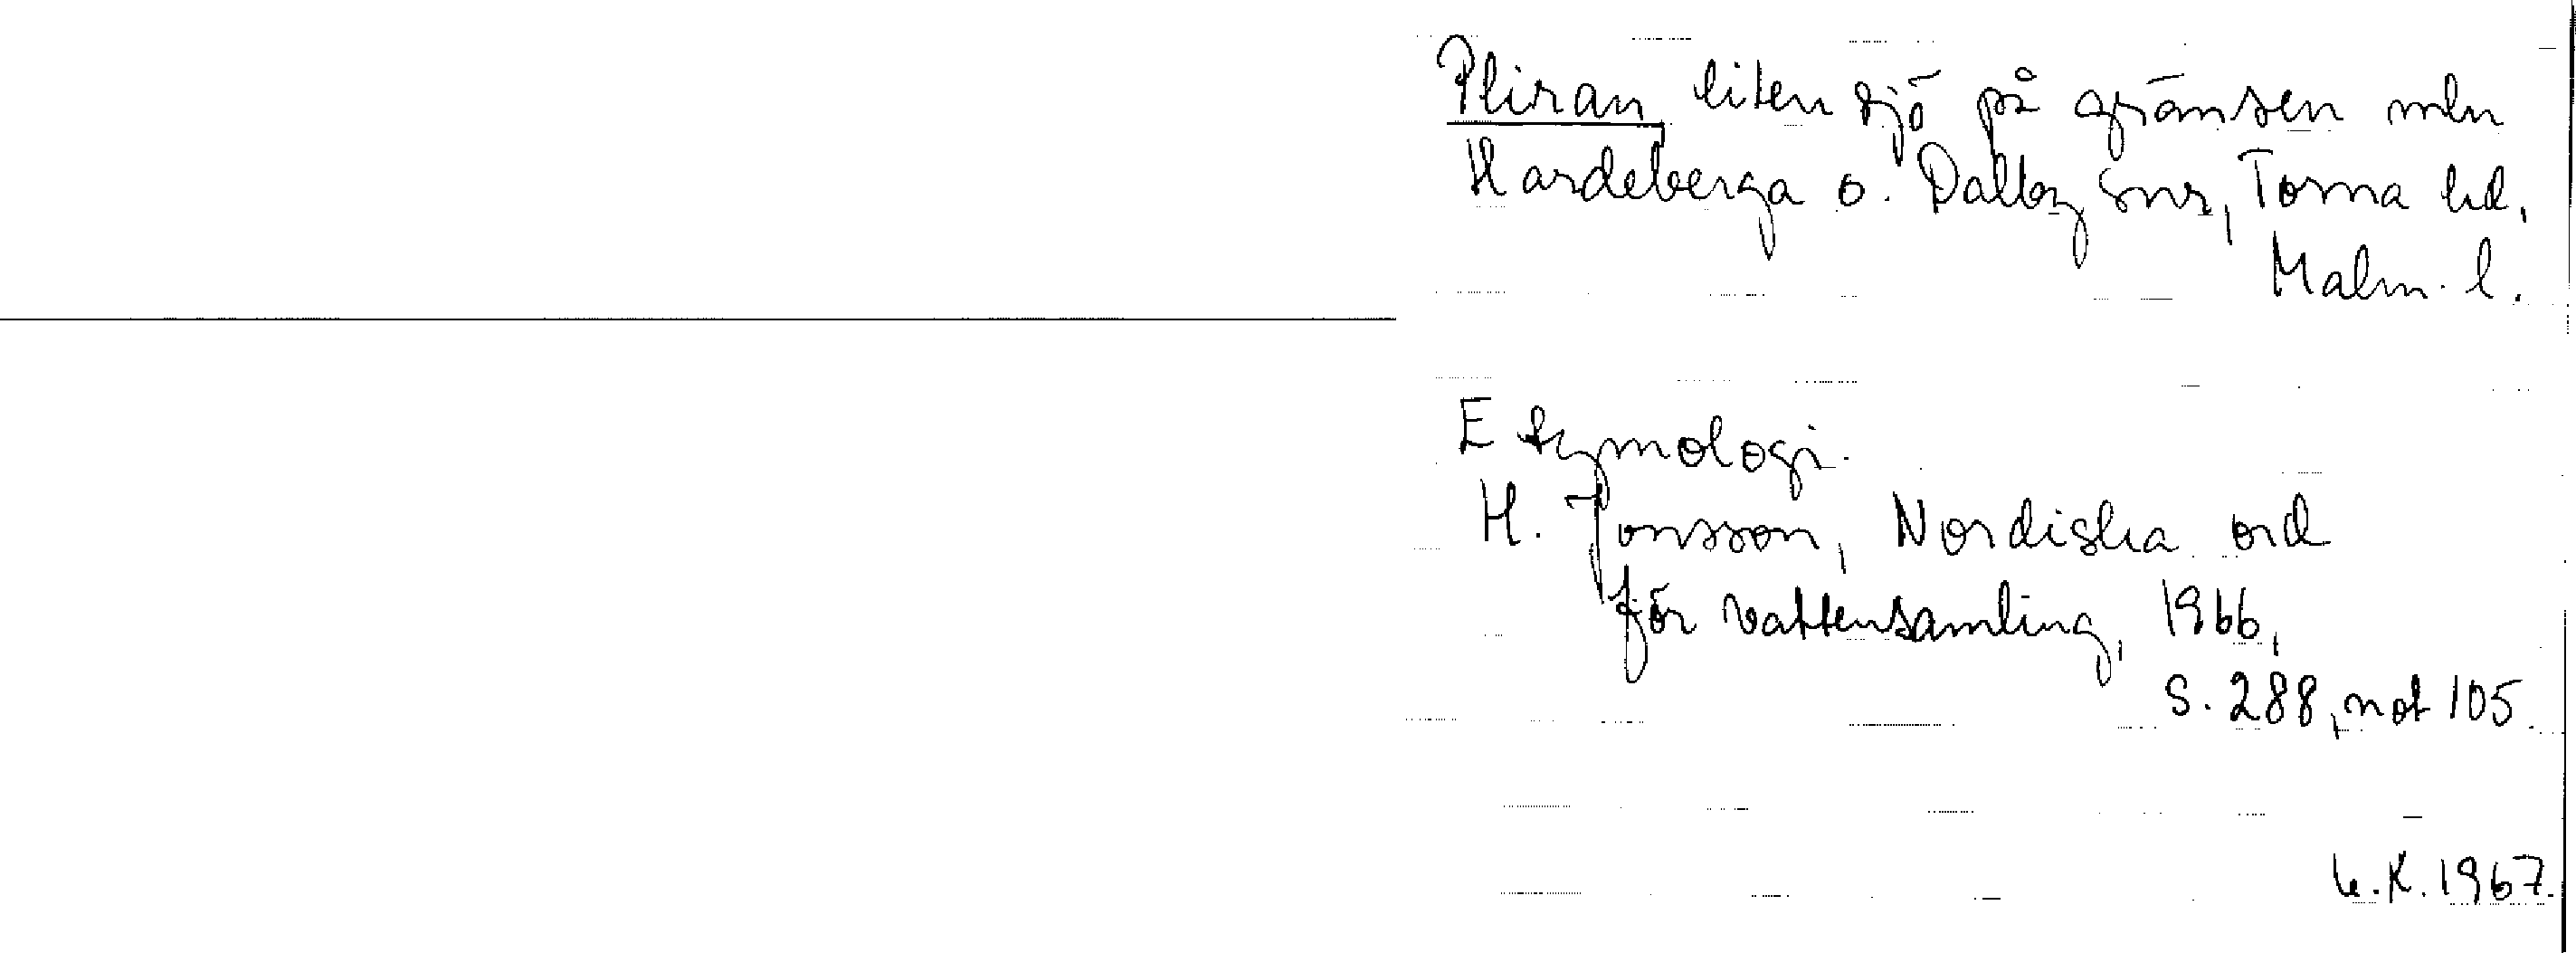 Pliran, liten sjö på gränsen mln
Hardeberga o. Dalby snr, Torna hd,
Malm. l.
Etymologi.
H. Jonsson, Nordiska ord
för vattensamling, 1966,
S. 288, not 105.
K. 1967.